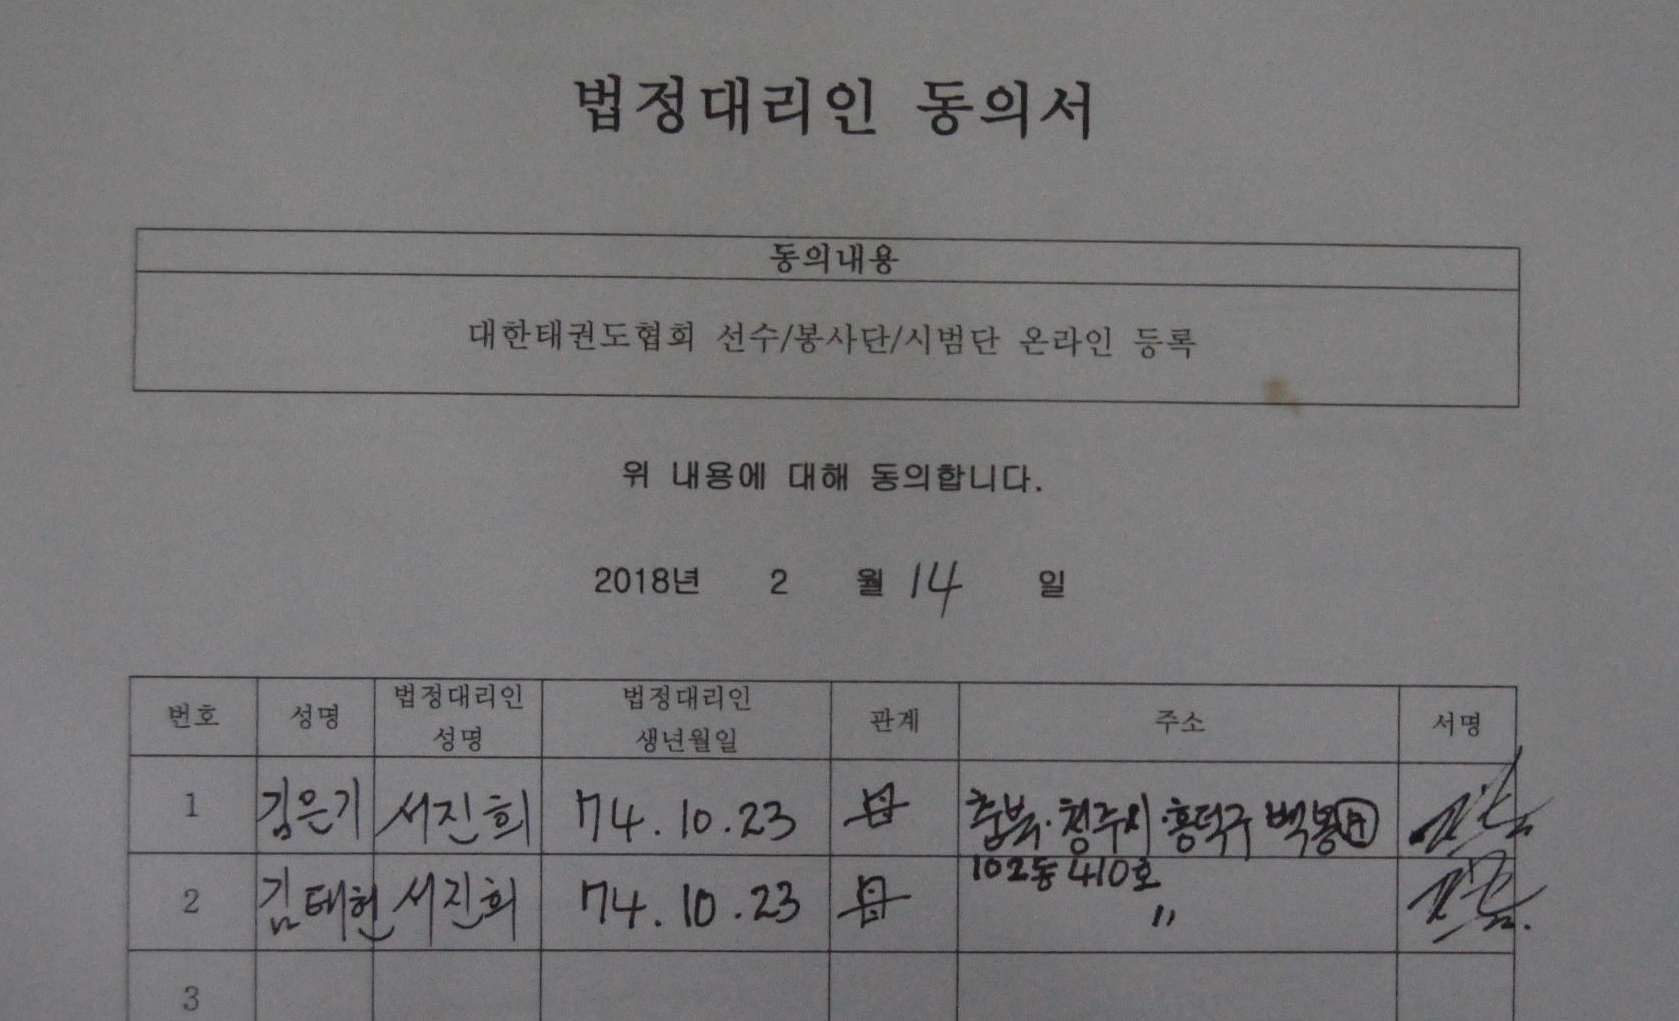 법정대리인 동의서
동의내용
대한태권도협회 선수/봉사단/시범단 온라인 등록
위 내용에 대해 동의합니다.
2018년 2 월 14 일
번호 성명 법정대리인 성명 법정대리인 생년월일 관계 주소 서명
1 김은기 서진희 74.10.23 母 충북·청주시·흥덕구 백봉
102동 410호
2 김태헌 서진희 74.10.23 母 〃
3